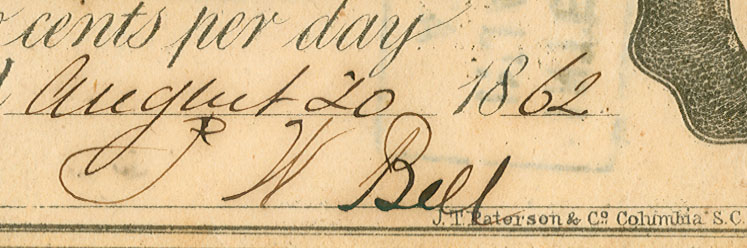 cents per day
August 20 1862
J W Bell
J. T. Paterson & Co Columbia S.C.